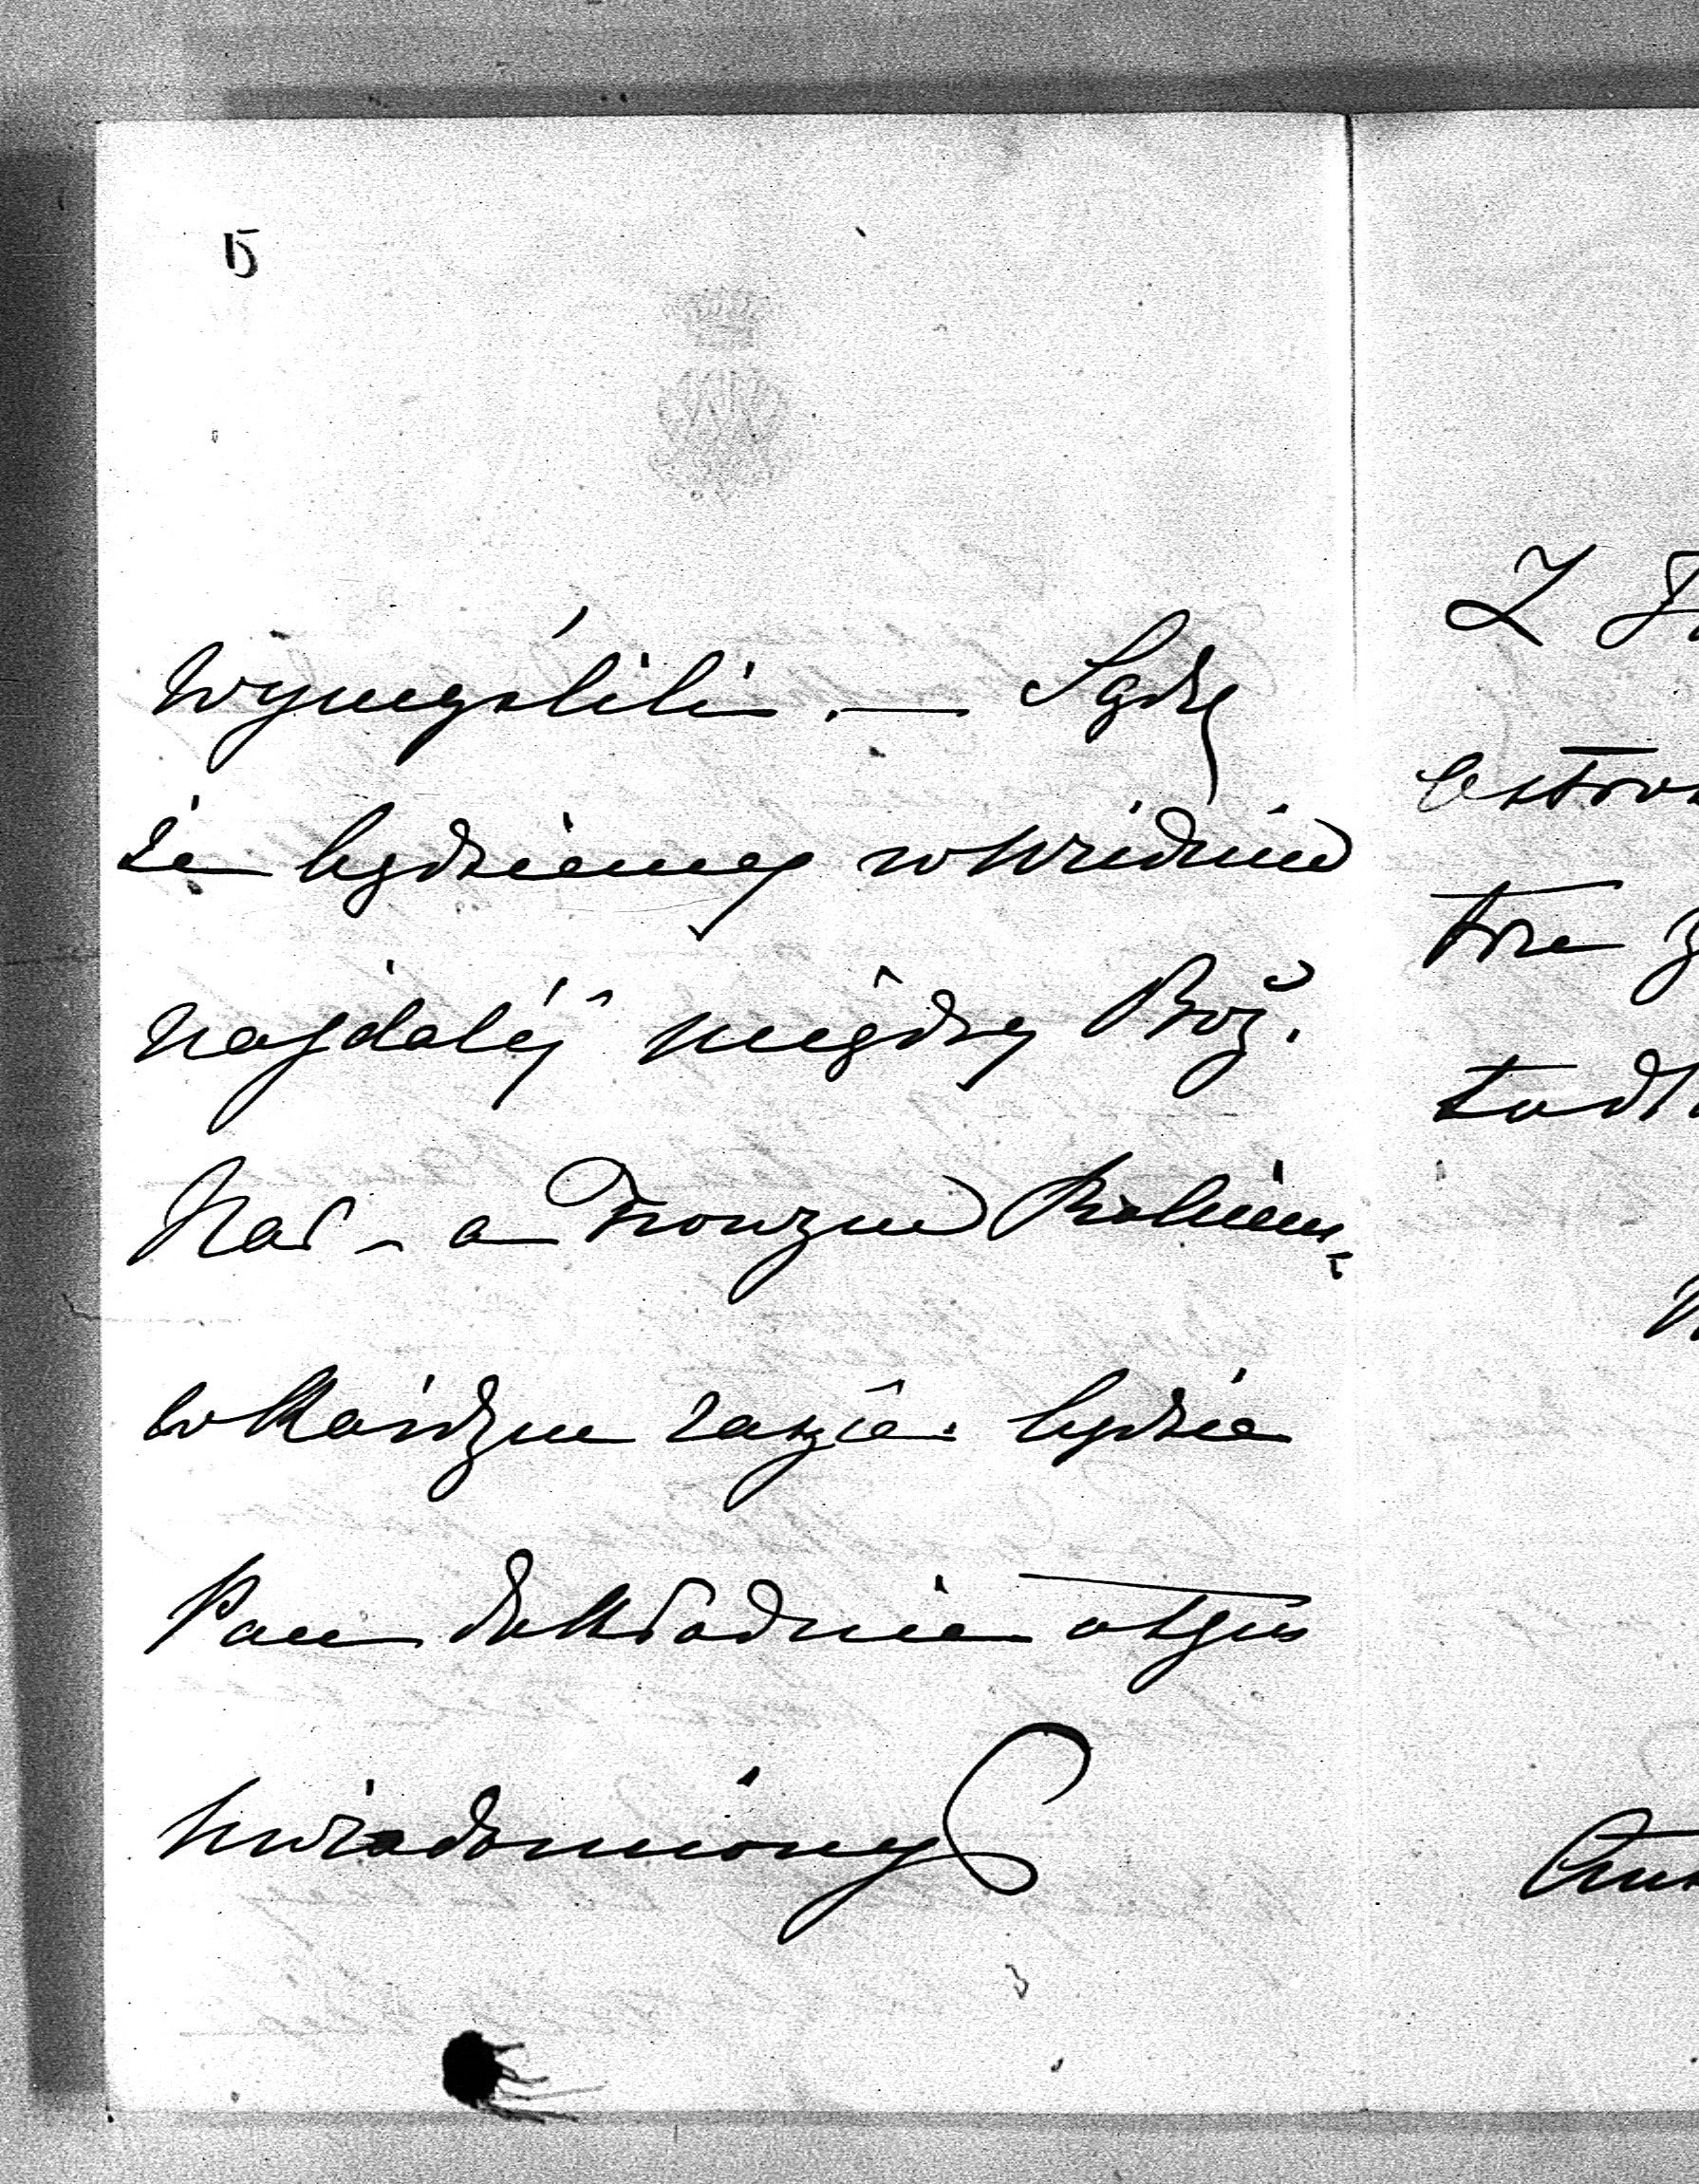 15
wymyślili. — Sądzę
że będziemy w Wiedniu
najdaléj między Boż.
Nar - a Nowym Rokiem,
w każdym razie będzie
Pan dokładnie o tym
uwiadomiony
Z
tre